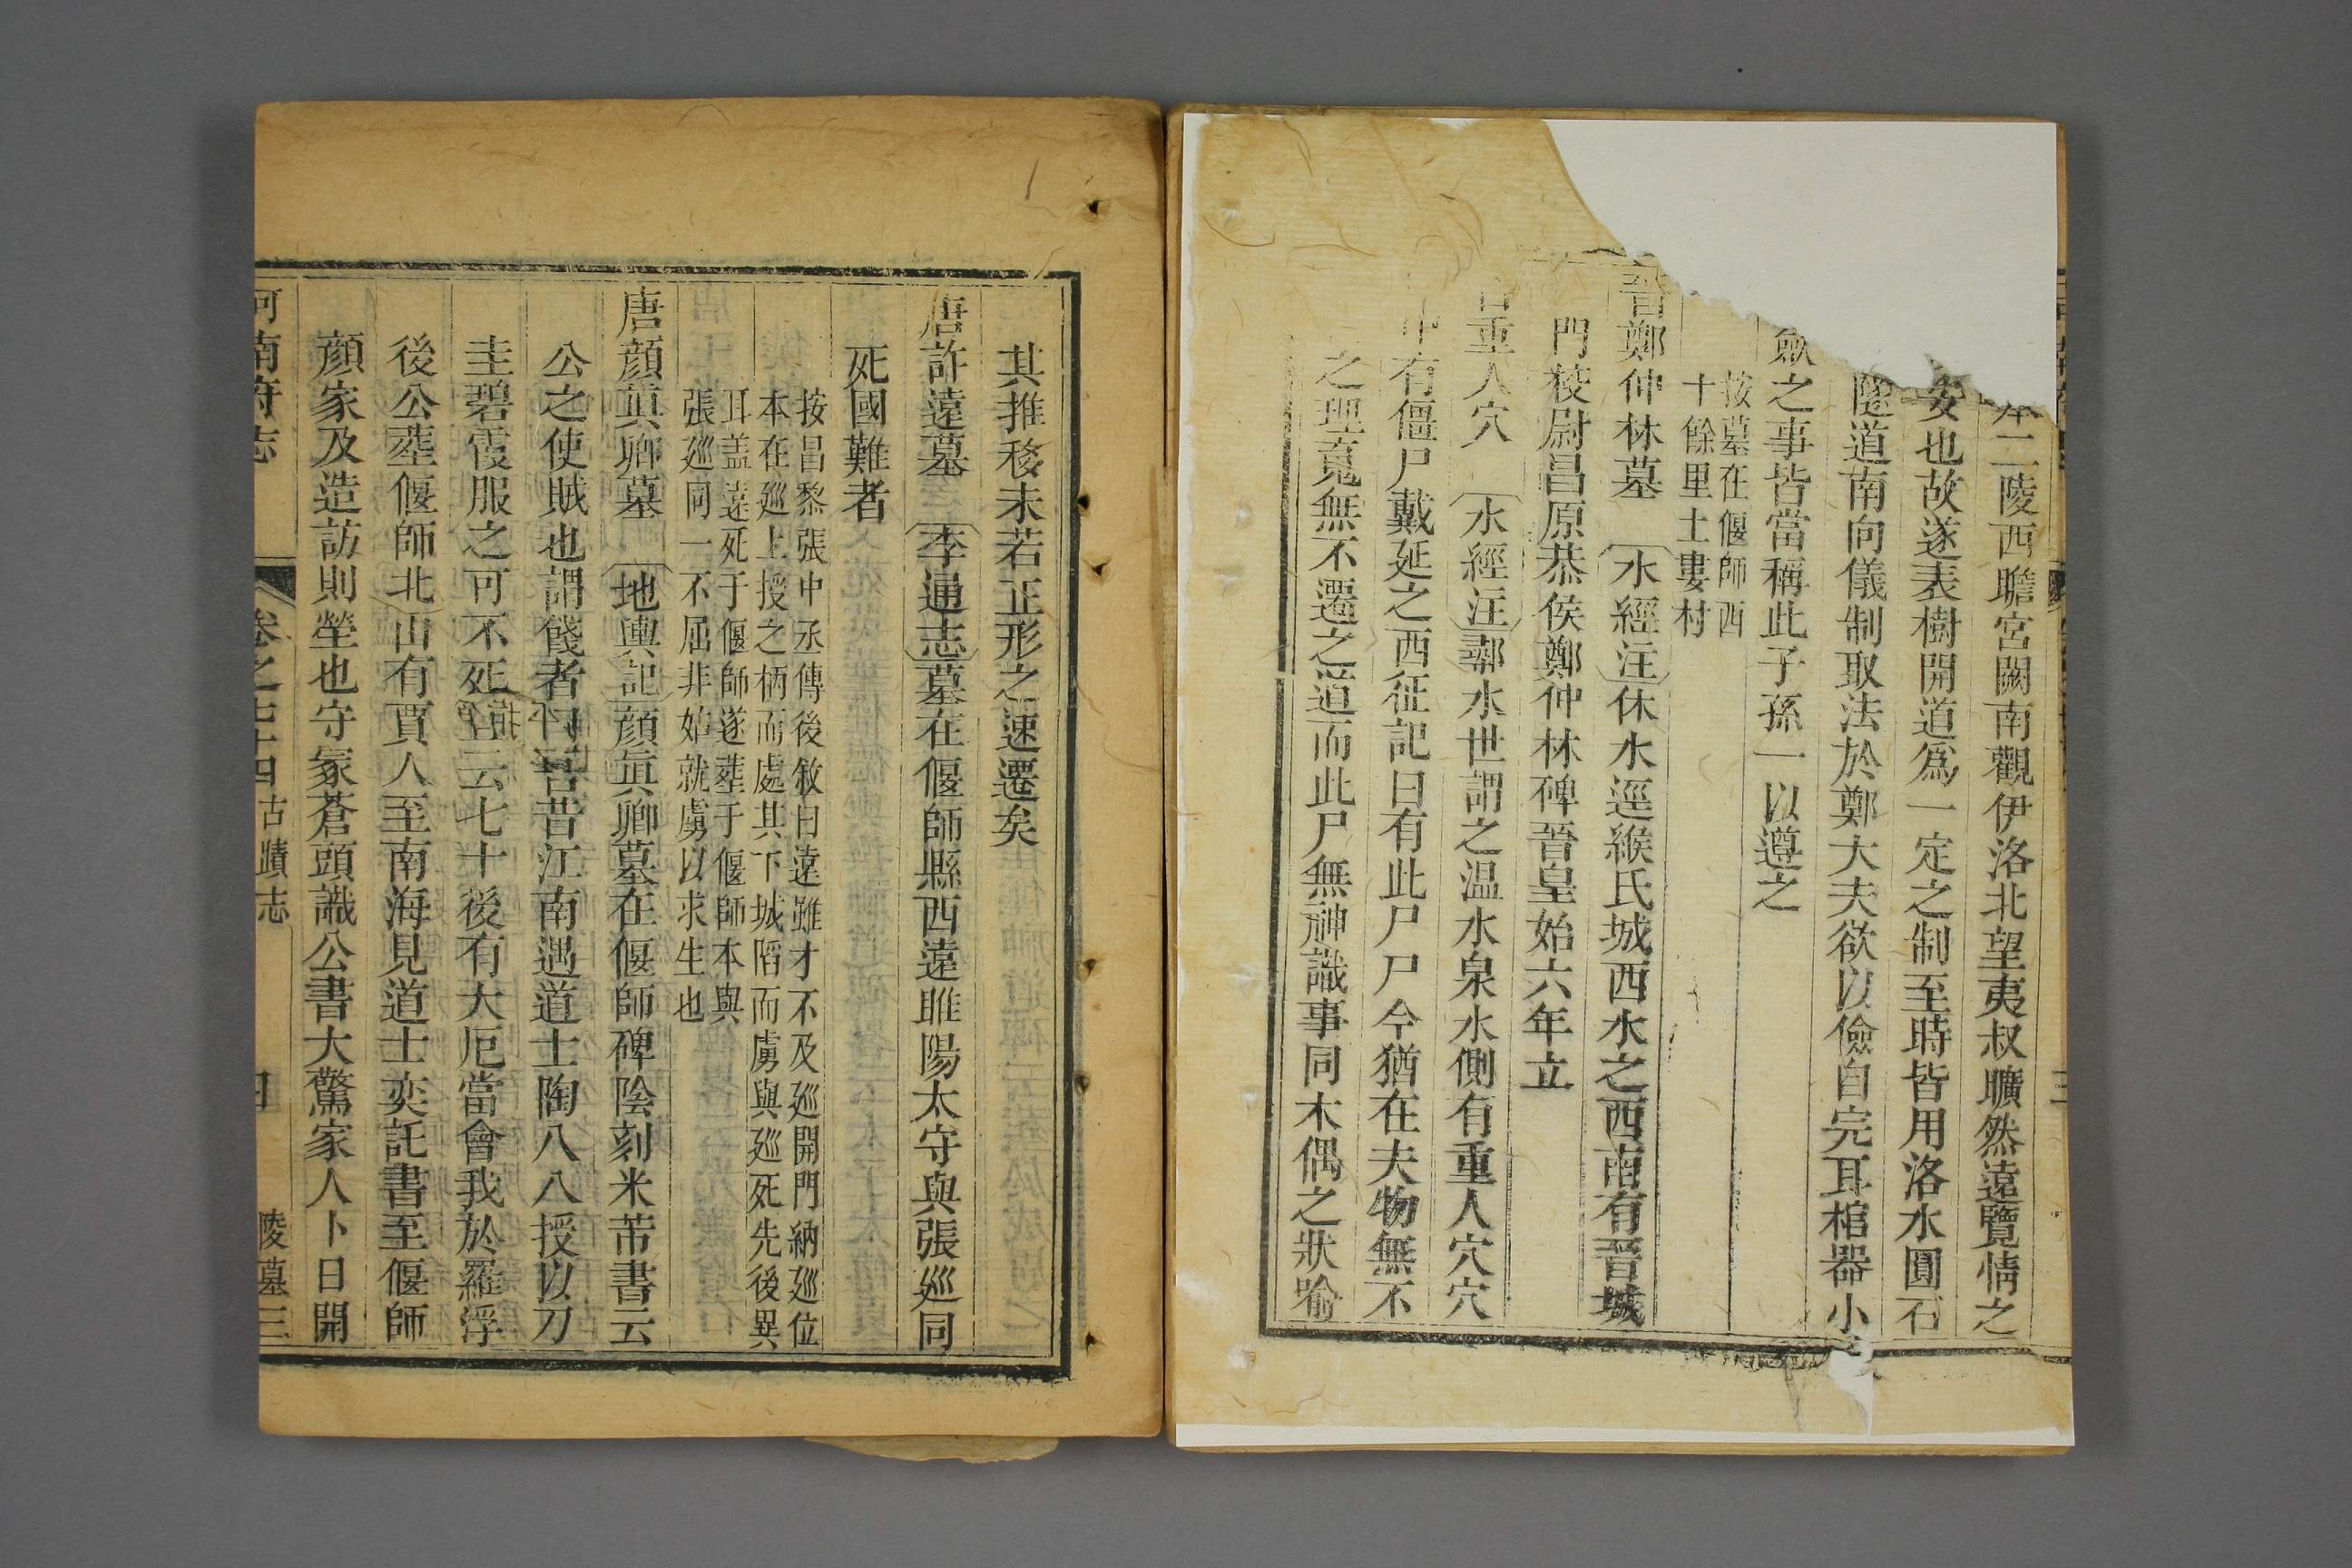 二陵西瞻宮闕南觀伊洛北望夷叔曠然遠覽情之
安也故遂表樹開道爲一定之制至時皆用洛水圓石
隧道南向儀制取法於鄭大夫欲以儉自完耳棺器小
斂之事皆當稱此子孫一以遵之
按墓在偃師西
十餘里土婁村
晉鄭仲林墓 水經注休水逕緱氏城西水之西南有晉城
門校尉昌原恭侯鄭仲林碑晉皇始六年立
重人穴 水經注鄩水世謂之温水泉水側有重人穴穴
中有僵尸戴延之西征記曰有此尸尸今猶在夫物無不
之理䰟無不遷之道而此尸無神識事同木偶之狀喻
其推移未若正形之速遷矣
唐許遠墓 李通志墓在偃師縣西遠睢陽太守與張廵同
死國難者
按昌黎張中丞傳後敘曰遠雖才不及廵開門納廵位
本在廵上授之柄而處其下城陷而虜與廵死先後異
耳盖遠死于偃師遂塟于偃師本與
張廵同一不屈非始就虜以求生也
唐顔眞卿墓 地輿記顔眞卿墓在偃師碑陰刻米芾書云
公之使賊也謂餞者曰吾昔江南遇道士陶八八授以刀
圭碧霞服之可不死云七十後有大厄當會我於羅浮
後公塟偃師北山有賈人至南海見道士奕託書至偃師
顔家及造訪則塋也守冢蒼頭識公書大驚家人卜日開
河南府志 卷之 十四 古蹟志 四 陵墓三